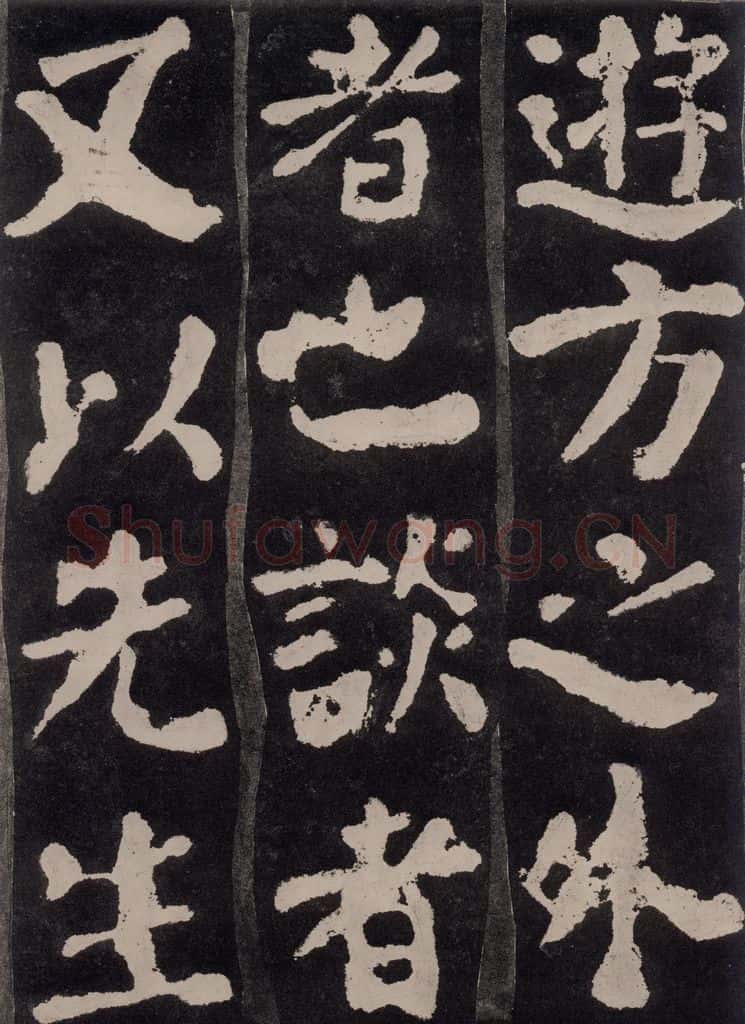 遊方之外
者也談者
又以先生
Shufawang.CN